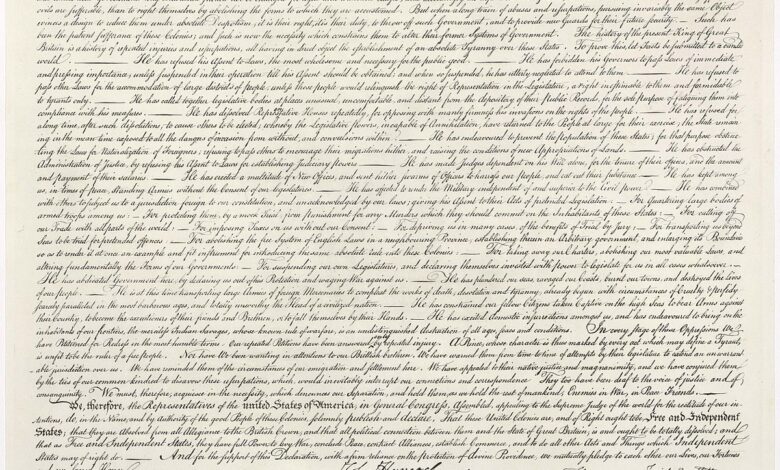 are sufferable, than to right themselves by abolishing the forms to which they are accustomed. But when a long train of abuses and usurpations, pursuing invariably the same Object
evinces a design to reduce them under absolute Despotism, it is their right, it is their duty, to throw off such Government, and to provide new Guards for their future security. — Such has
been the patient sufferance of these Colonies; and such is now the necessity which constrains them to alter their former Systems of Government. The history of the present King of Great
Britain is a history of repeated injuries and usurpations, all having in direct object the establishment of an absolute Tyranny over these States. To prove this, let Facts be submitted to a candid
world. — He has refused his Assent to Laws, the most wholesome and necessary for the public good. — He has forbidden his Governors to pass Laws of immediate
and pressing importance, unless suspended in their operation till his Assent should be obtained; and when so suspended, he has utterly neglected to attend to them. — He has refused to
pass other Laws for the accommodation of large districts of people, unless those people would relinquish the right of Representation in the Legislature, a right inestimable to them and formidable
to tyrants only. — He has called together legislative bodies at places unusual, uncomfortable, and distant from the depository of their public Records, for the sole purpose of fatiguing them into
compliance with his measures. — He has dissolved Representative Houses repeatedly, for opposing with manly firmness his invasions on the rights of the people. — He has refused for
a long time, after such dissolutions, to cause others to be elected; whereby the Legislative powers, incapable of Annihilation, have returned to the People at large for their exercise; the State remain-
ing in the mean time exposed to all the dangers of invasion from without, and convulsions within. — He has endeavoured to prevent the population of these States; for that purpose obstruc-
ting the Laws for Naturalization of Foreigners; refusing to pass others to encourage their migrations hither, and raising the conditions of new Appropriations of Lands. — He has obstructed the
Administration of Justice, by refusing his Assent to Laws for establishing Judiciary powers. — He has made Judges dependent on his Will alone, for the tenure of their offices, and the amount
and payment of their salaries. — He has erected a multitude of New Offices, and sent hither swarms of Officers to harrass our people, and eat out their substance. — He has kept among
us, in times of peace, Standing Armies without the Consent of our legislatures. — He has affected to render the Military independent of and superior to the Civil power. — He has combined
with others to subject us to a jurisdiction foreign to our constitution, and unacknowledged by our laws; giving his Assent to their Acts of pretended Legislation: — For Quartering large bodies of
armed troops among us: — For protecting them, by a mock Trial, from punishment for any Murders which they should commit on the Inhabitants of these States: — For cutting off
our Trade with all parts of the world: — For imposing Taxes on us without our Consent: — For depriving us in many cases, of the benefits of Trial by Jury: — For transporting us beyond
Seas to be tried for pretended offences — For abolishing the free System of English Laws in a neighbouring Province, establishing therein an Arbitrary government, and enlarging its Boundaries
so as to render it at once an example and fit instrument for introducing the same absolute rule into these Colonies: — For taking away our Charters, abolishing our most valuable Laws, and
altering fundamentally the Forms of our Governments: — For suspending our own Legislatures, and declaring themselves invested with power to legislate for us in all cases whatsoever. —
He has abdicated Government here, by declaring us out of his Protection and waging War against us. — He has plundered our seas, ravaged our Coasts, burnt our towns, and destroyed the lives
of our people. — He is at this time transporting large Armies of foreign Mercenaries to compleat the works of death, desolation and tyranny, already begun with circumstances of Cruelty & perfidy
scarcely paralleled in the most barbarous ages, and totally unworthy the Head of a civilized nation. — He has constrained our fellow Citizens taken Captive on the high Seas to bear Arms against
their Country, to become the executioners of their friends and Brethren, or to fall themselves by their Hands. — He has excited domestic insurrections amongst us, and has endeavoured to bring on the
inhabitants of our frontiers, the merciless Indian Savages, whose known rule of warfare, is an undistinguished destruction of all ages, sexes and conditions. In every stage of these Oppressions We
have Petitioned for Redress in the most humble terms: Our repeated Petitions have been answered only by repeated injury. A Prince, whose character is thus marked by every act which may define a Tyrant,
is unfit to be the ruler of a free people. Nor have We been wanting in attentions to our Brittish brethren. We have warned them from time to time of attempts by their legislature to extend an unwarrant-
able jurisdiction over us. We have reminded them of the circumstances of our emigration and settlement here. We have appealed to their native justice and magnanimity, and we have conjured them
by the ties of our common kindred to disavow these usurpations, which, would inevitably interrupt our connections and correspondence. They too have been deaf to the voice of justice and of
consanguinity. We must, therefore, acquiesce in the necessity, which denounces our Separation, and hold them, as we hold the rest of mankind, Enemies in War, in Peace Friends. —
We, therefore, the Representatives of the united States of America, in General Congress, Assembled, appealing to the Supreme Judge of the world for the rectitude of our in-
tentions, do, in the Name, and by Authority of the good People of these Colonies, solemnly publish and declare, That these United Colonies are, and of Right ought to be Free and Independent
States; that they are Absolved from all Allegiance to the British Crown, and that all political connection between them and the State of Great Britain, is and ought to be totally dissolved; and
that as Free and Independent States, they have full Power to levy War, conclude Peace, contract Alliances, establish Commerce, and to do all other Acts and Things which Independent
States may of right do. — And for the support of this Declaration, with a firm reliance on the protection of divine Providence, we mutually pledge to each other our Lives, our Fortunes